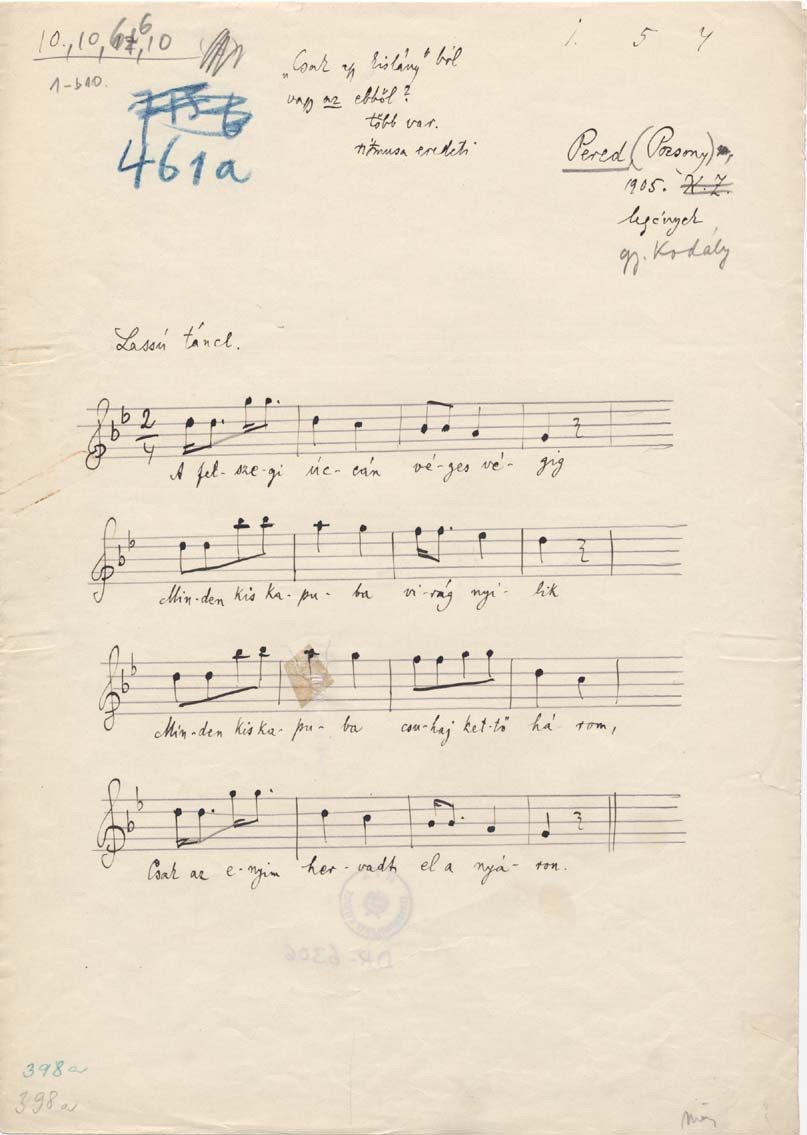 10., 10, 6+6, 10
1 - b10.
461a
1. 5 4
„Csak egy kislány" ból
vagy az ebből?
több var.
ritmusa eredeti
Pered, (Pozsony)
1905. K. Z.
legények
gy. Kodály
Lassú táncl.
2
4
A fel-sze-gi úc-cán vé-ges vé-gig
Min-den kis ka-pu-ba vi-rág nyí-lik
Min-den kis ka-pu-ba csu-haj ket-tő há rom,
Csak az e-nyim her-vadt el a nyá-ron.
DR-6306
398a
398a